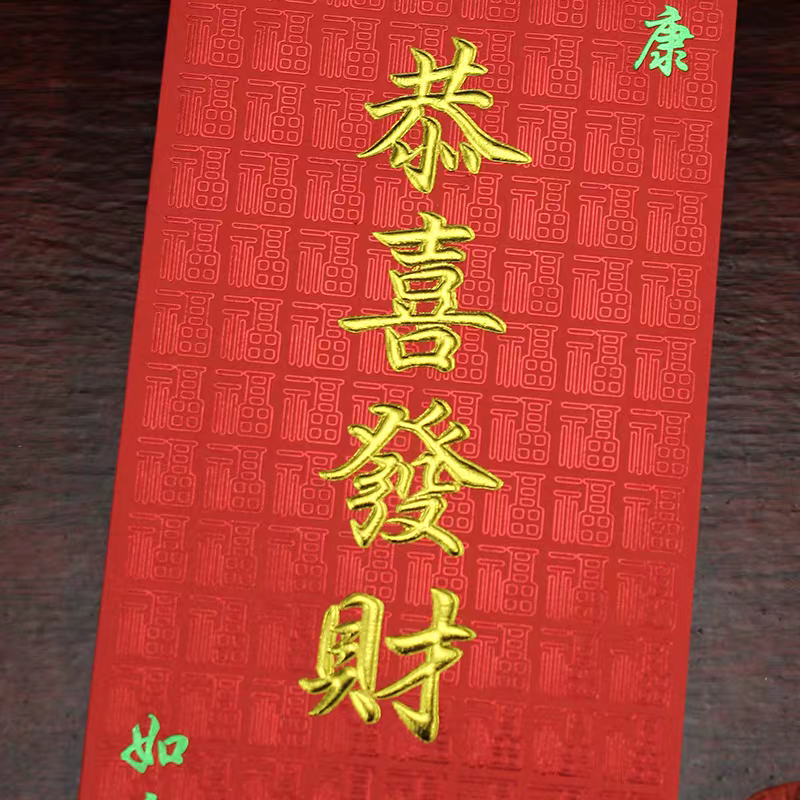 康
恭喜發財
如